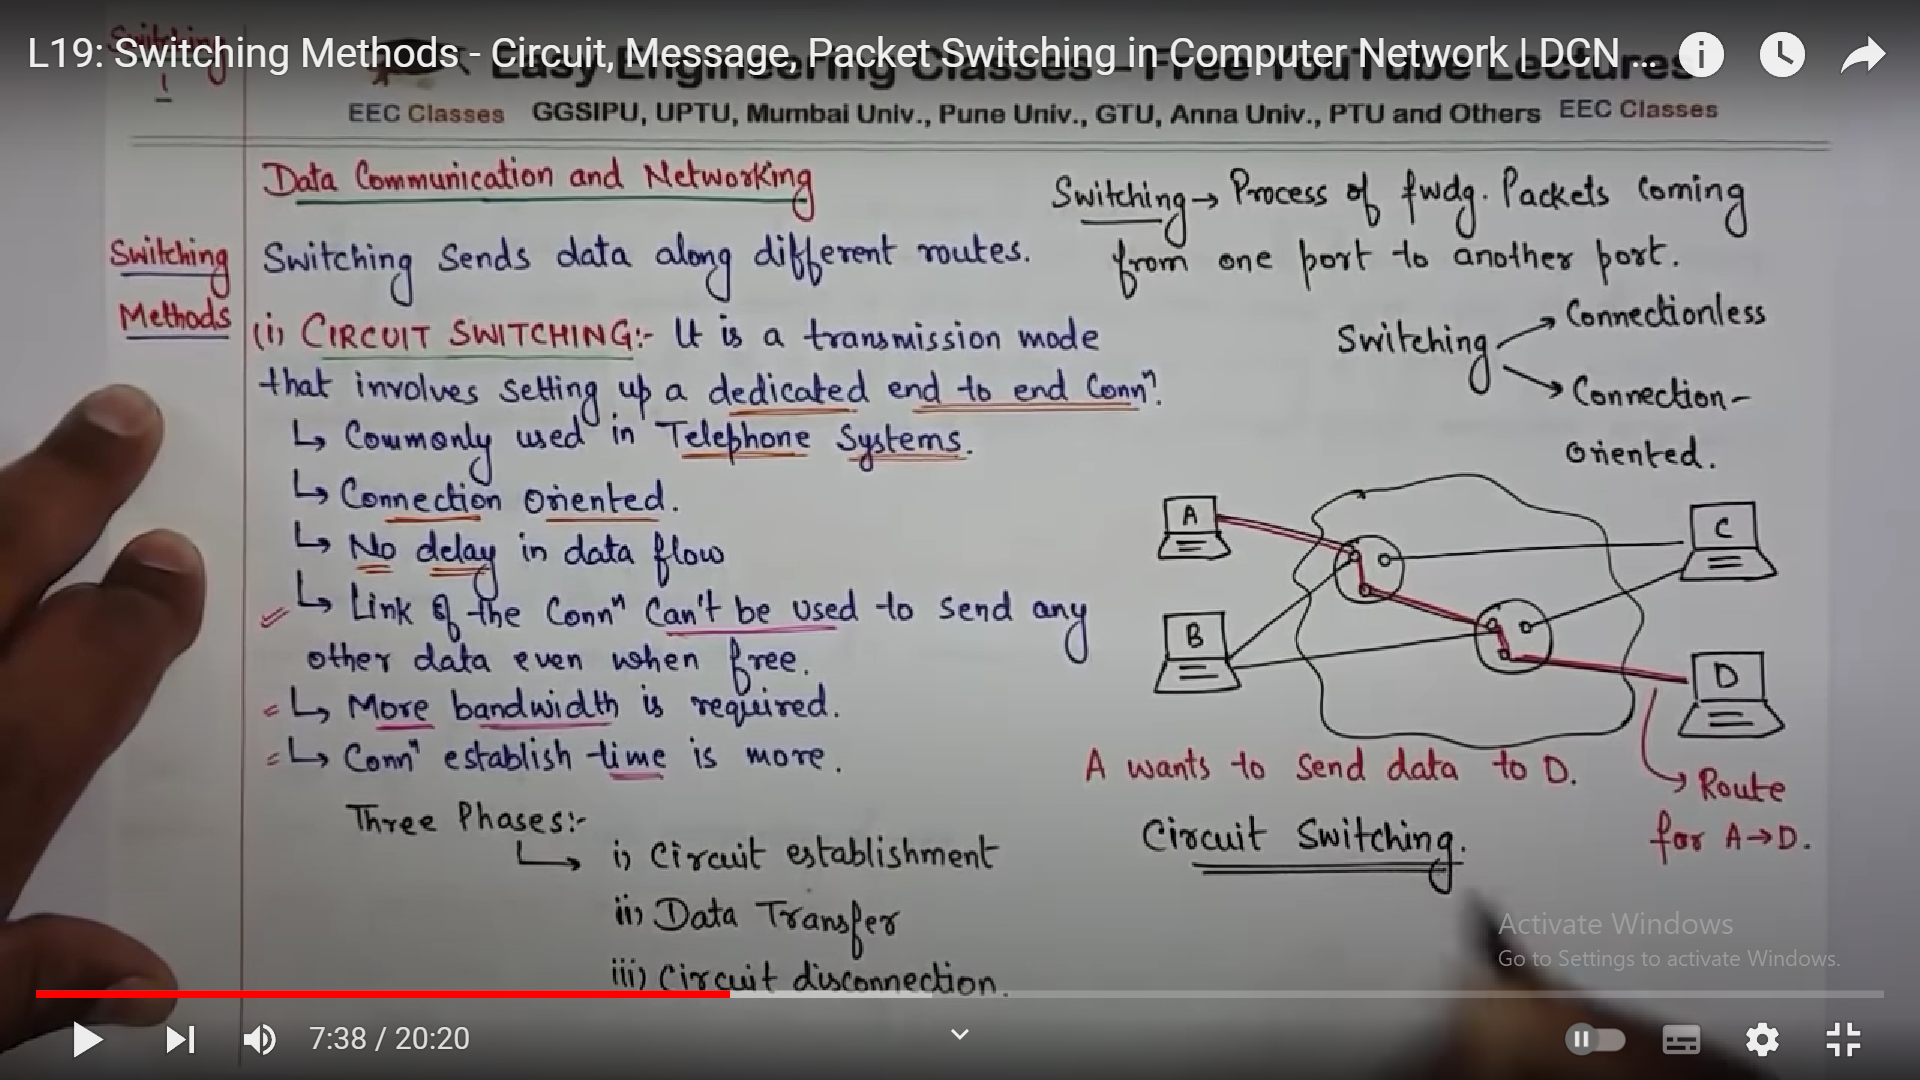 L19: Switching Methods - Circuit, Message, Packet Switching in Computer Network | DCN ...
Switching
1
Easy Engineering Classes – Free YouTube Lectures
EEC Classes GGSIPU, UPTU, Mumbai Univ., Pune Univ., GTU, Anna Univ., PTU and Others EEC Classes
Data Communication and Networking
Switching Methods
Switching Sends data along different routes.
(i) CIRCUIT SWITCHING:- It is a transmission mode
that involves setting up a dedicated end to end Connⁿ.
↳ Commonly used in Telephone Systems.
↳ Connection oriented.
↳ No delay in data flow
↳ Link of the Connⁿ Can't be used to send any
other data even when free.
↳ More bandwidth is required.
↳ Connⁿ establish time is more.
Three Phases:-
i) Circuit establishment
ii) Data Transfer
iii) Circuit disconnection.
Switching → Process of fwdg. Packets Coming
from one port to another port.
Switching
Connectionless
Connection-
Oriented.
A
B
C
D
A wants to send data to D.
Route
for A→D.
Circuit Switching.
Activate Windows
Go to Settings to activate Windows.
7:38 / 20:20